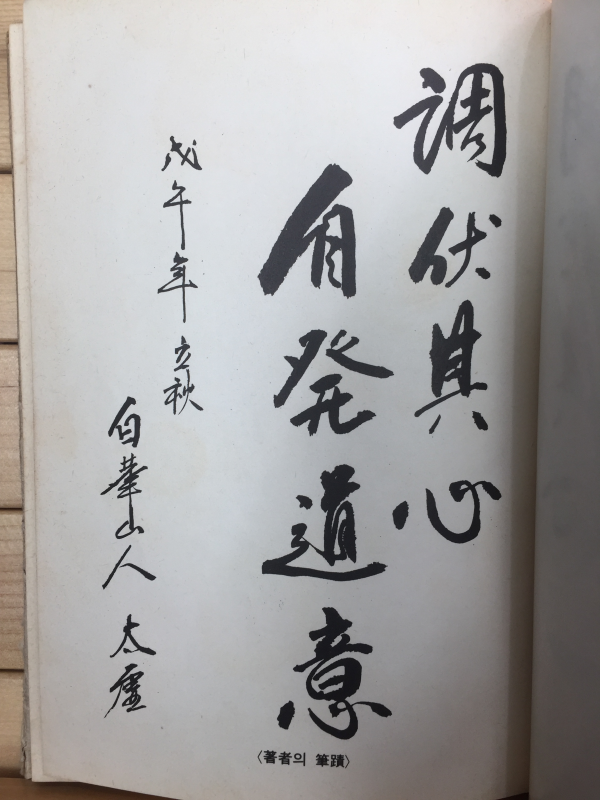 调伏其心
自発道意
戊午年 立秋
白華山人 太虚
〈著者의 筆蹟〉